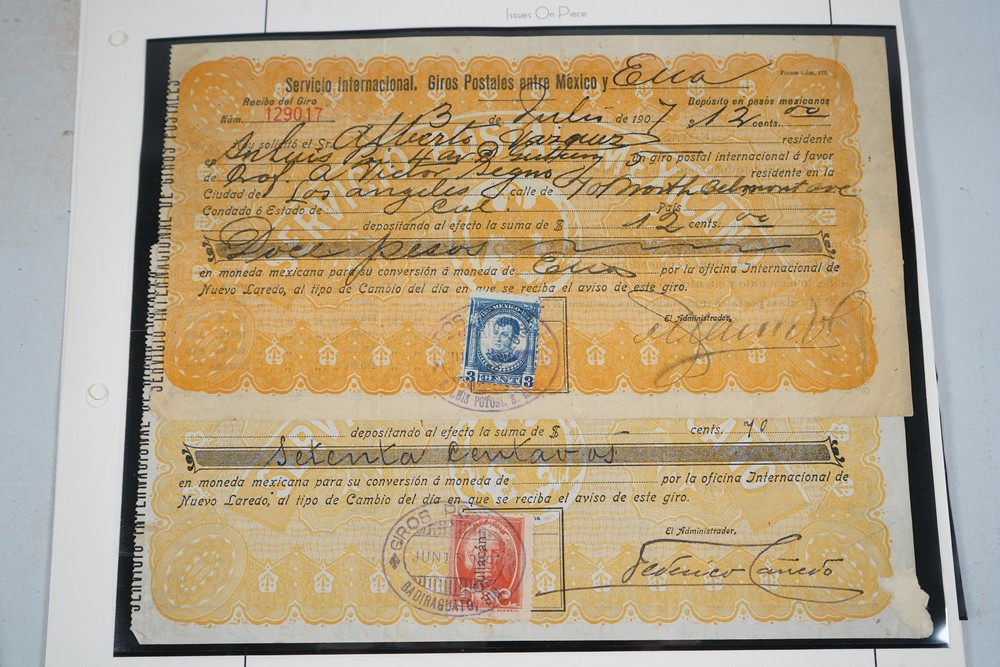 Issues On Piece
Servicio Internacional. Giros Postales entre México y Eua
Forma núm. 178.
Recibo del Giro
Depósito en pesos mexicanos
Núm. 129017 3 de Julio de 1907 $ 12 cents. 00
Hoy solicitó el Sr. Alberto Vazquez residente
en Sn Luis un giro postal internacional á favor
de Prof. A Victor Segno residente en la
Ciudad de Los Angeles calle de 701 North Belmont ave
Condado ó Estado de Cal. País
depositando al efecto la suma de $ 12 cents. 00
Doce pesos
en moneda mexicana para su conversión á moneda de Eua por la oficina Internacional de
Nuevo Laredo, al tipo de Cambio del día en que se reciba el aviso de este giro.
El Administrador,
MEXICO
3 CENT 3
LUIS POTOSI, S.
SERVICIO INTERNACIONAL DE GIROS POSTALES
depositando al efecto la suma de $ cents. 70
Setenta centavos
en moneda mexicana para su conversión á moneda de por la oficina Internacional de
Nuevo Laredo, al tipo de Cambio del día en que se reciba el aviso de este giro.
El Administrador,
Federico Cañedo
GIROS
JUN
Culiacán
BADIRAGUATO,